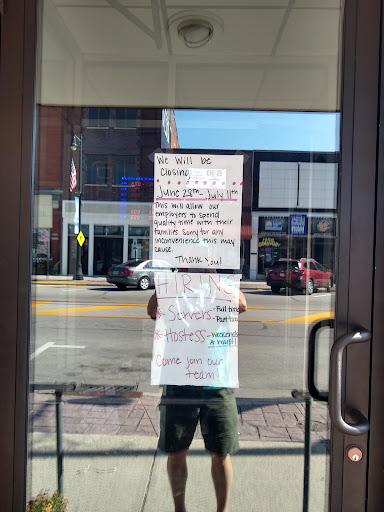 We Will be
Closing
June 28th - July 11th
This will allow our
employees to spend
quality time with their
families. Sorry for any
inconvenience this may
cause.
Thank You!
HIRING
* Servers - Full time
Part time
* Hostess - Weekends
A MUST!
Come join our
team